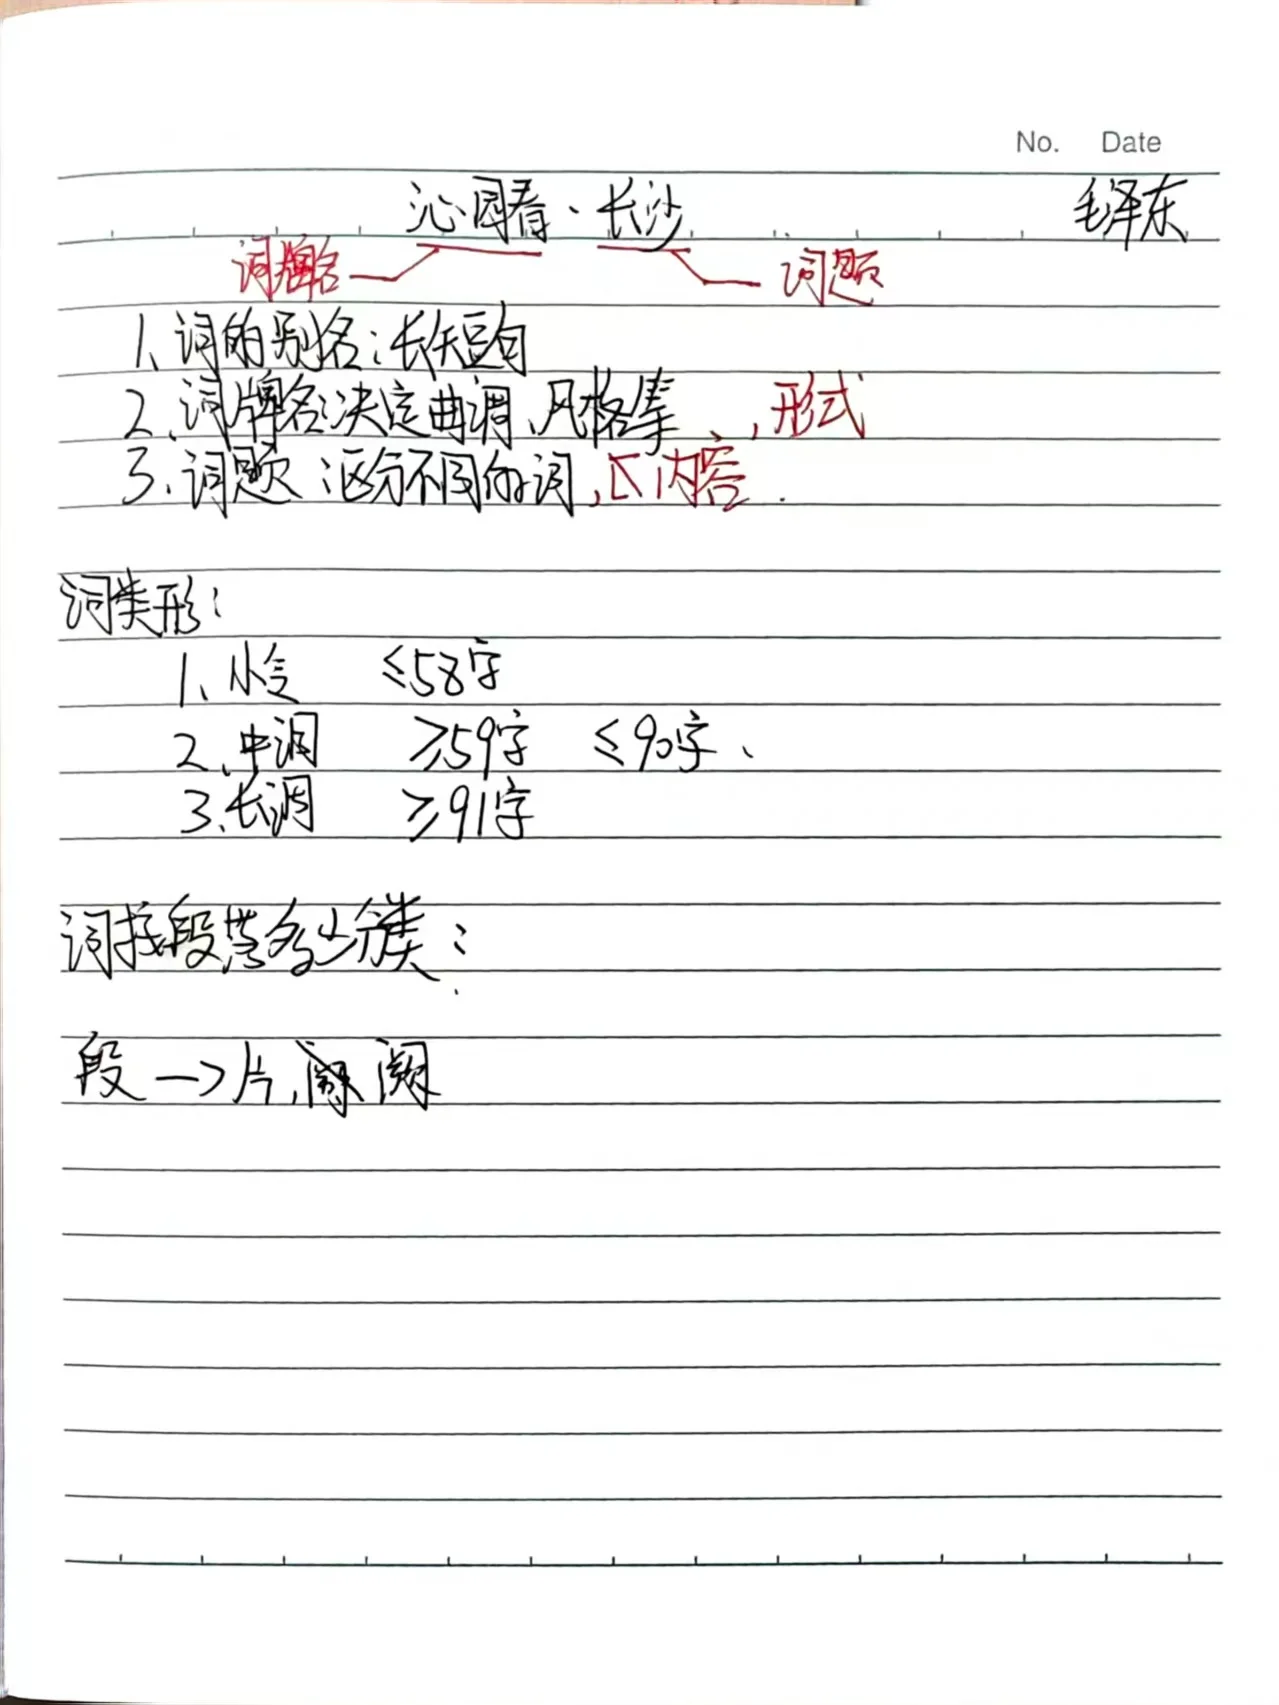 No. Date
沁园春·长沙 毛泽东
词牌名 词题
1、词的别名:长短句
2、词牌名:决定曲调、风格等,形式
3、词题:区分不同的词,内容.
词类形:
1、小令 ≤58字
2、中调 ≥59字 ≤90字、
3、长调 ≥91字
词按段落多少分类:
段—>片, 阕